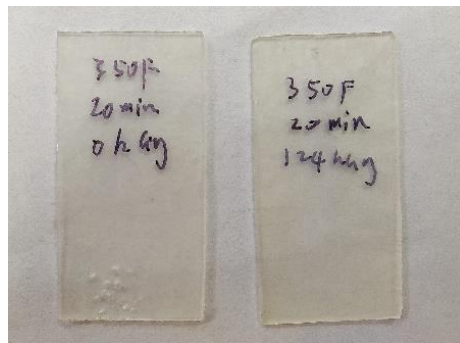 350F
20min
0h
350F
20min
124h